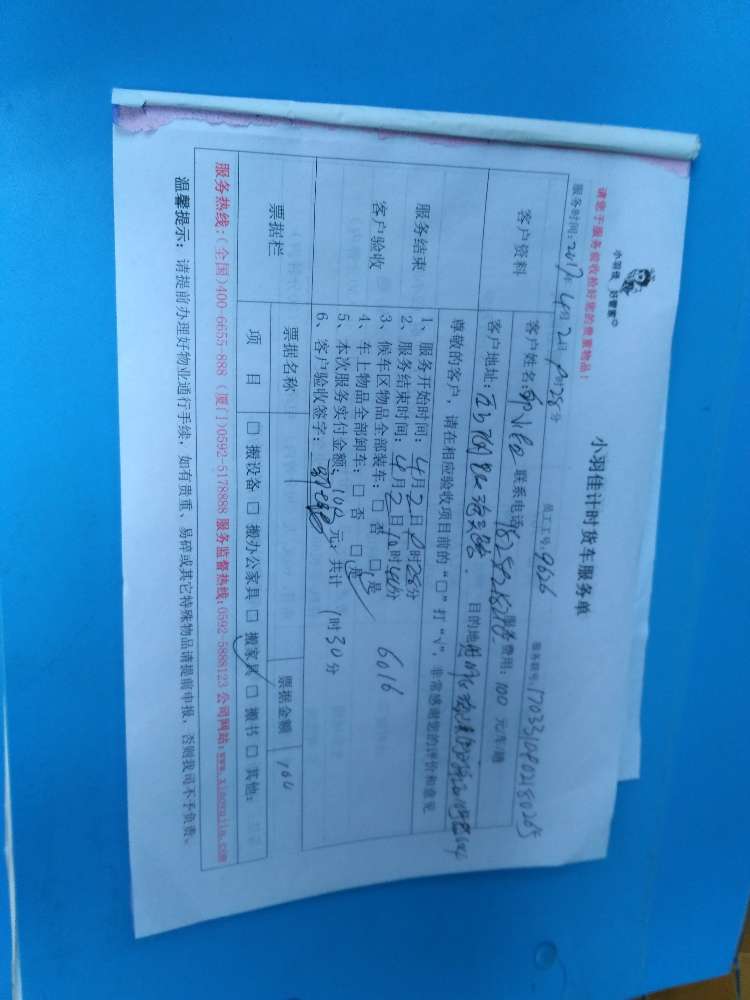 小羽佳 好管家
小羽佳计时货车服务单
请您于服务前收拾好您的贵重物品！
员工工号: 9626
服务联号: 1703310802180265
服务时间: 2017年4月2日 时28分
客户资料
客户姓名: 联系电话: 服务费用: 100 元/车/趟
客户地址: 目的地:
尊敬的客户，请在相应验收项目前的“□”打“√”，非常感谢您的评价和意见
服务结束
客户验收
1、服务开始时间: 4月2日 时28分
2、服务结束时间: 4月2日10时40分
3、候车区物品全部装车: □ 否 □ 是
4、车上物品全部卸车: □ 否 □ 是
6016
5、本次服务实付金额: 元，共计 1时30分
6、客户验收签字:
票据栏
票据名称
票据金额
160
项 目
□ 搬设备 □ 搬办公家具 □ 搬家具 □ 搬书 □ 其他:
服务热线: (全国)400-6655-888 (厦门)0592-5178888 服务监督热线: 0592-5888123 公司网站: www.xiaoyujia.com
温馨提示: 请提前办理好物业通行手续，如有贵重、易碎或其它特殊物品请提前申报，否则我司不予负责。